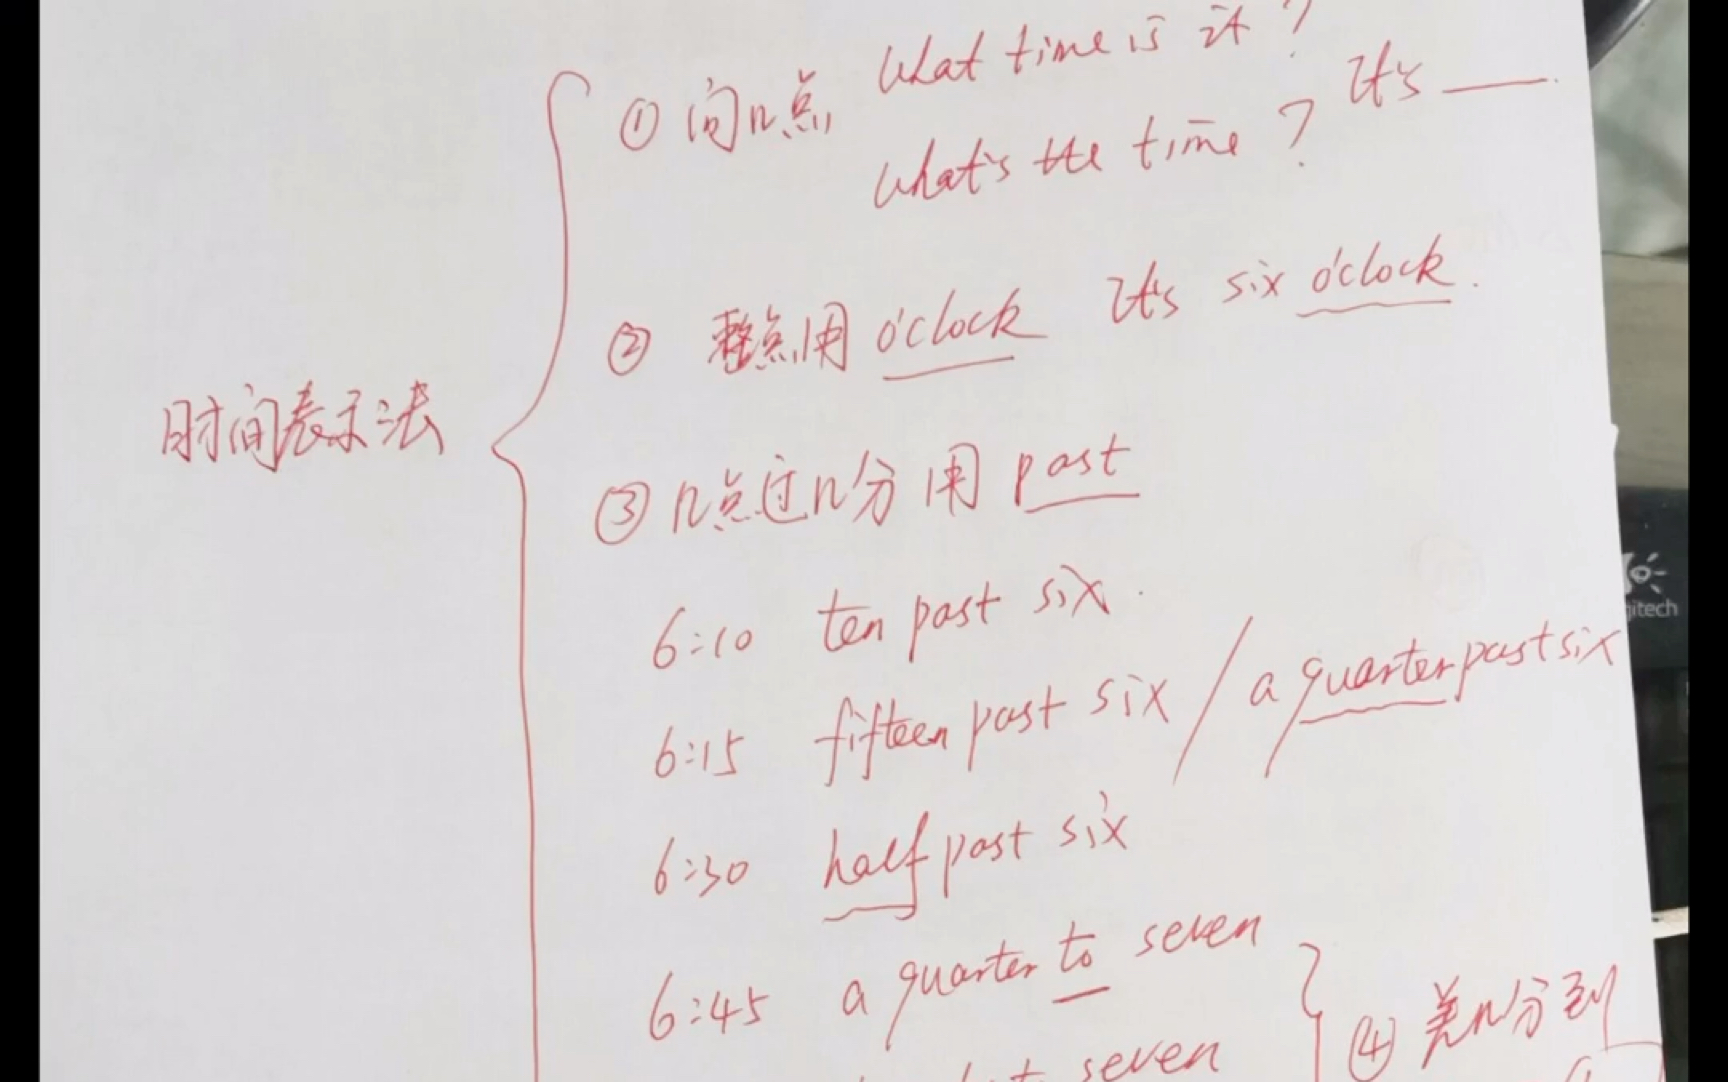 What time is it?
① 问几点 It's ___.
What's the time?
② 整点用 o'clock It's six o'clock.
时间表示法
③ 几点过几分用 past
6:10 ten past six.
gitech
6:15 fifteen past six / a quarter past six
6:30 half past six
6:45 a quarter to seven
④ 差几分到
to seven